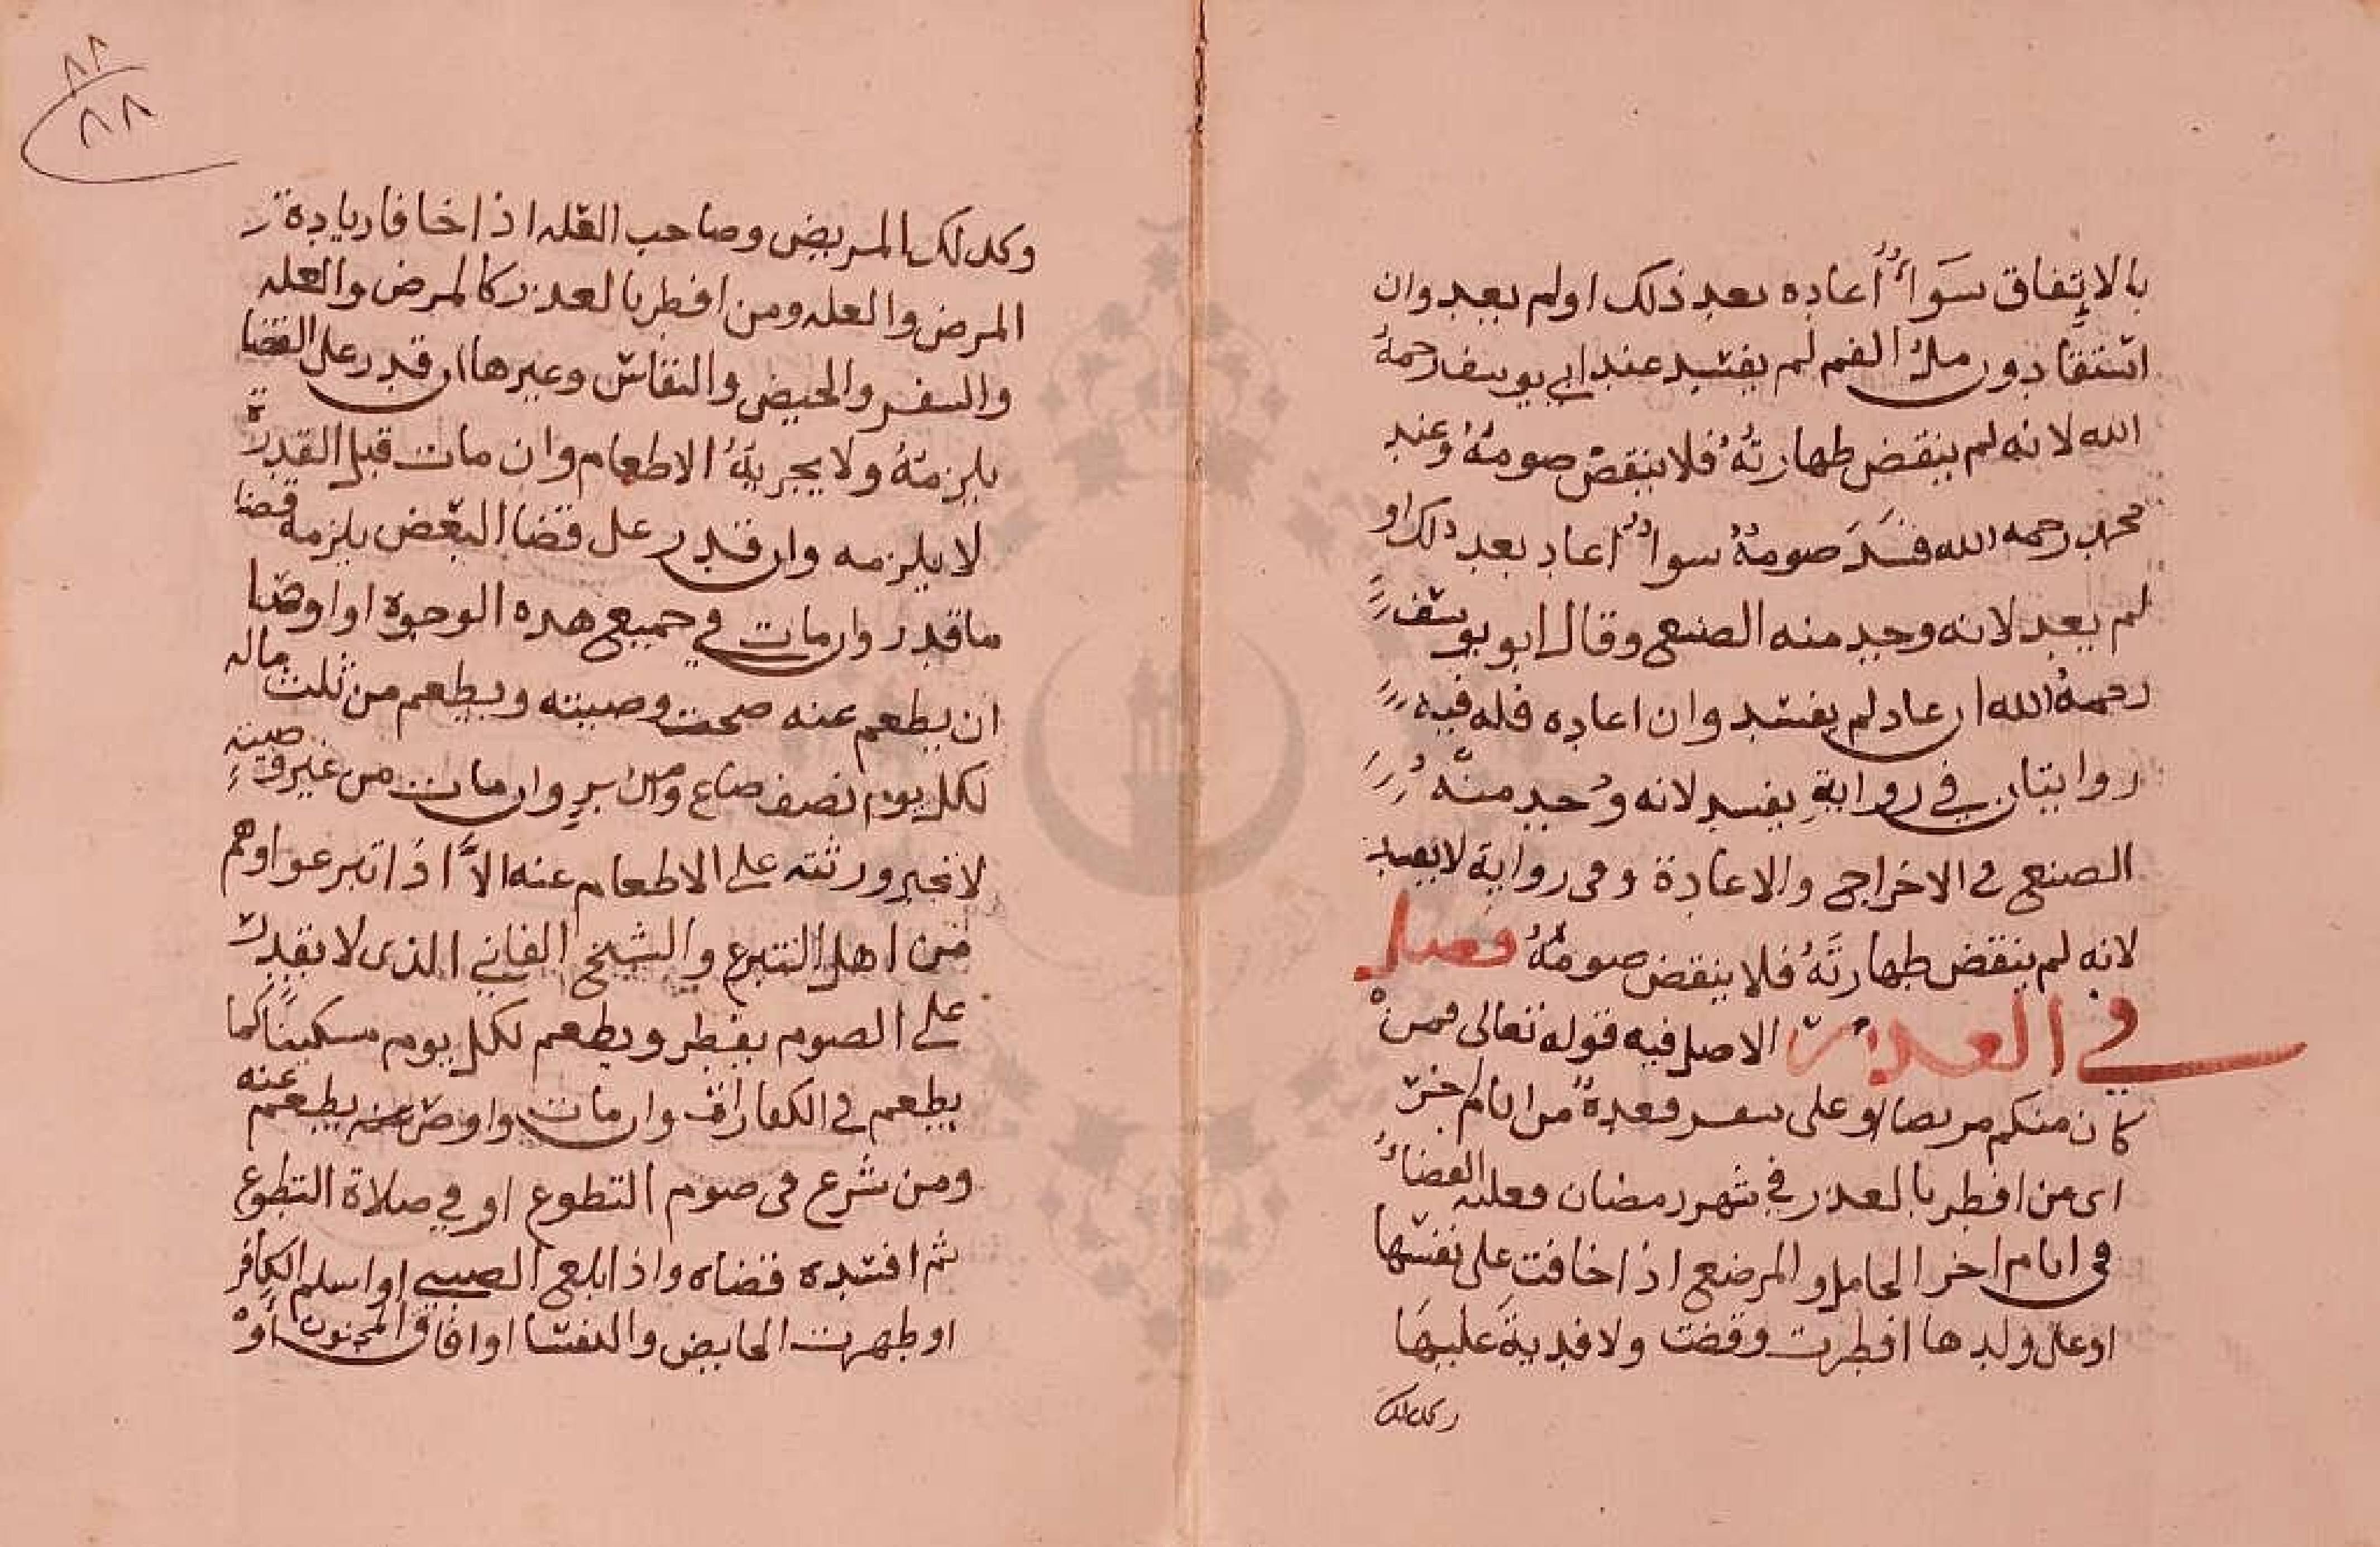 بالاتفاق سَوَاءٌ اعاده بعد ذلك اولم يعد وان
استقا دون ملأ الفم لم يفسد عند ابي يوسف رحمهُ
الله لانه لم ينقض طهارتهُ فلا ينقض صومهُ وعند
محمد رحمه الله فسَدَ صومهُ سواءٌ اعاد بعد ذلك او
لم يعد لانه وجد منه الصنع وقال ابو يوسف
رحمهُ الله ان عاد لم يفسد وان اعاده فله فيه
روايتان في روايةٍ يفسد لانه وُجد منهُ
الصنع في الاخراج والاعادة وفى رواية لا يفسد
لانه لم ينقض طهارتَهُ فلا ينقض صومهُ فصل
في العذر الاصل فيه قوله تعالى فمنْ
كان منكم مريضا او على سفر فعدةٌ من ايام اخر
اى من افطر بالعذر في شهر رمضان فعليه القضاءُ
فى ايام اخر الحامل والمرضع اذا خافت على نفسها
او على ولدها افطرت وقضت ولا فديةَ عليهَا
وكذلك
٨٨
٨٨
وكذلك المريض وصاحب العله اذا خافا زيادة
المرض والعله ومن افطر بالعذر كالمرض والعله
والسفر والحيض والنفاس وغيرها ان قدر على القضا
يلزمهُ ولا يجزيهُ الاطعام وان مات قبل القدرة
لا يلزمه وان قدر على قضا البعض يلزمه قضا
ما قدر وان مات في جميع هذه الوجوه اواوصا
ان يطعم عنه صحت وصيته ويطعم من ثلث ماله
لكل يوم نصف صاع من برٍ وان مات من غير وصيته
لا تجبر ورثته على الاطعام عنه الاَّ اذا تبرعوا وهم
من اهل التبرع والشيخ الفاني الذى لا يقدر
على الصوم يفطر ويطعم لكل يوم مسكينًا كما
يطعم في الكفارات وان مات واوصى يطعم عنه
ومن شرع فى صوم التطوع او في صلاة التطوع
ثم افسده قضاه واذا بلغ الصبي او اسلم الكافر
او طهرت الحايض والنفسا او افاق المجنون اَوْ